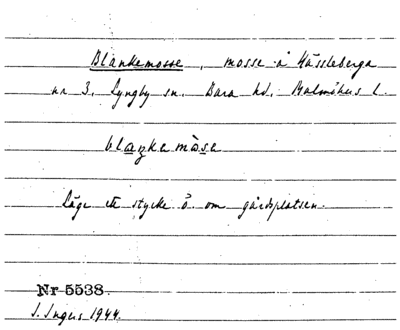 Blankemosse, mosse å Hässleberga
nr 3, Lyngby sn. Bara hd. Malmöhus l.
blaŋkemåse
Läge ett stycke ö om gårdsplatsen.
Nr 5538.
I. Ingers 1944.